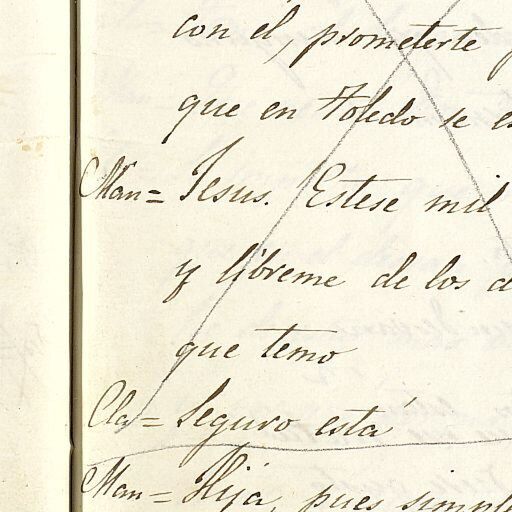 con él, prometerte
que en Toledo se
Man = Jesus. Estese mil
y libreme de los
que temo
Cla = Seguro está
Man = Hija, pues